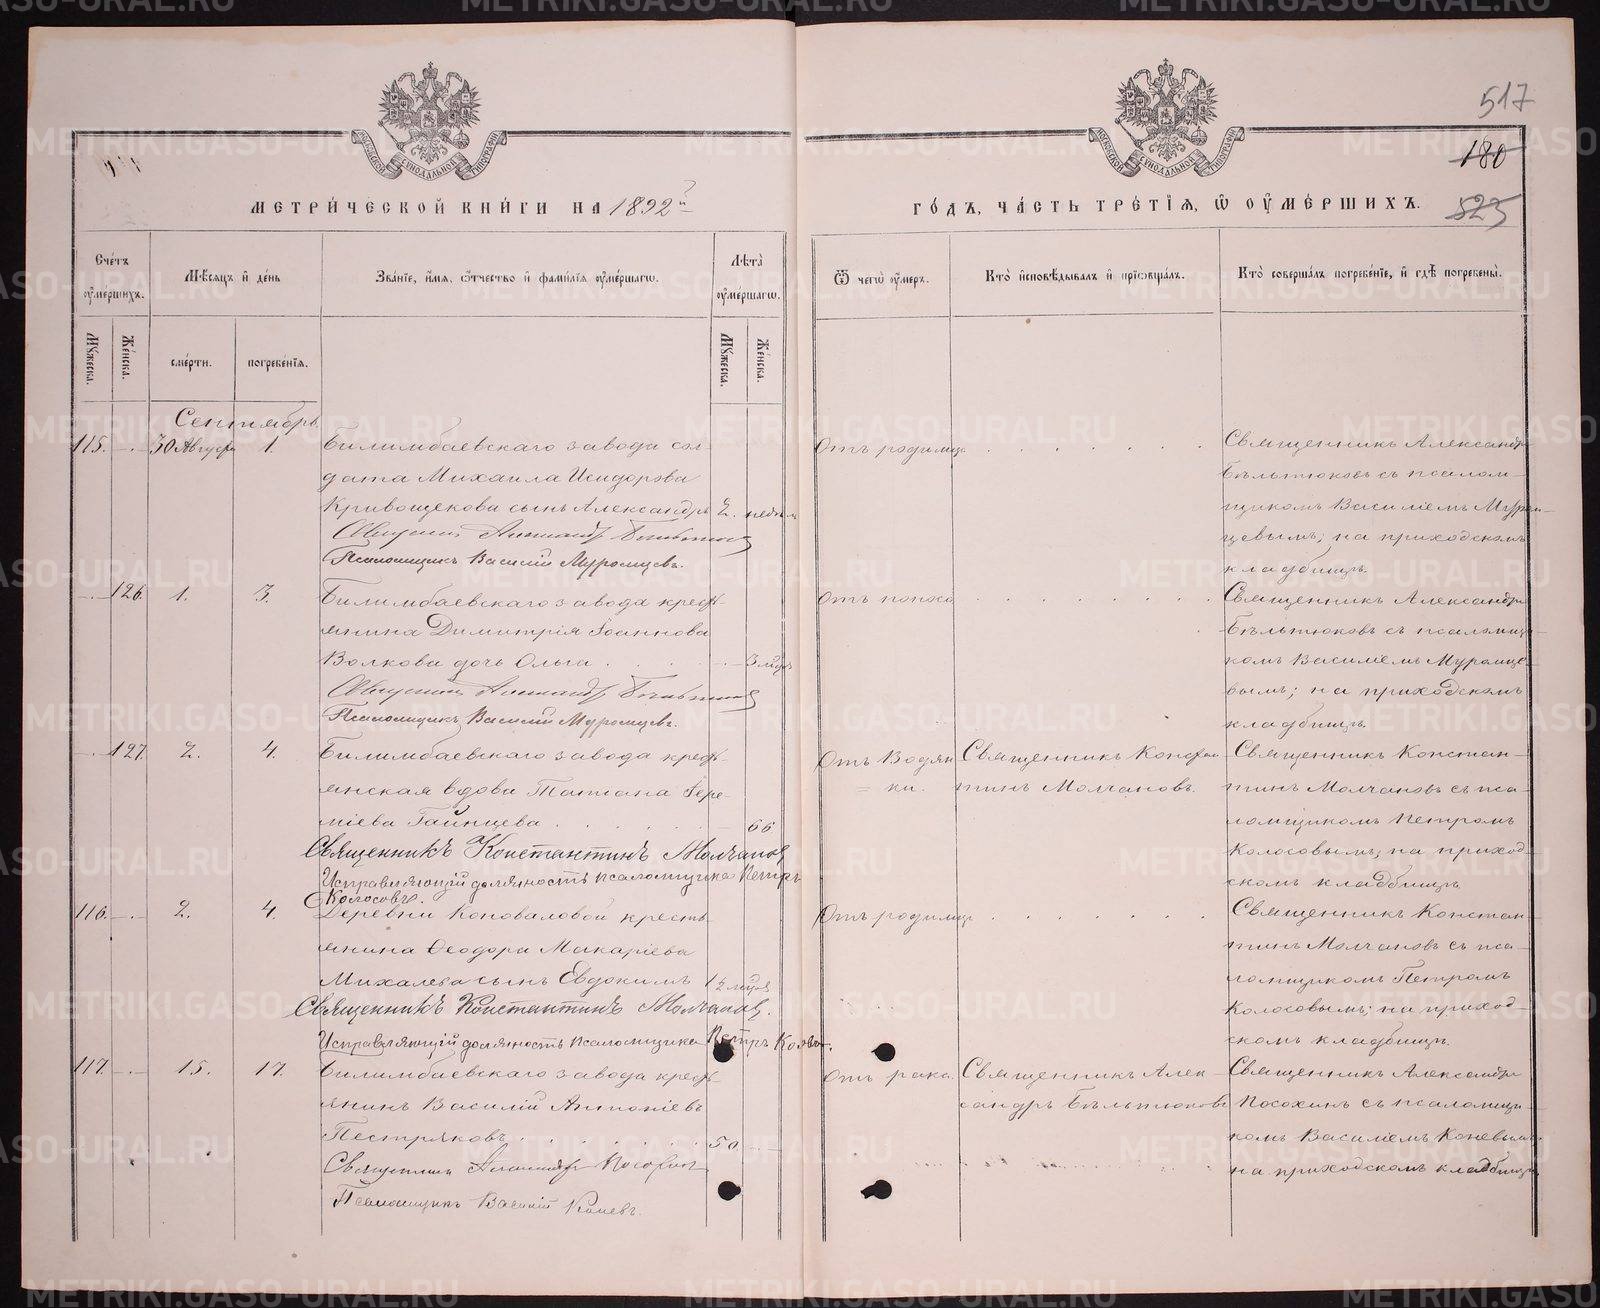 517
180
525
МЕТРИ́ЧЕСКОЙ КНИ́ГИ НА 1892й
ГО́ДЪ, ЧА́СТЬ ТРЕ́ТІЯ, Ѿ ОУМЕ́РШИХЪ.
Сче́тъ оуме́ршихъ.
Мѣ́сяцъ и де́нь
Зва́ніе, и́мя, о́тчество и фами́лія оуме́ршагѡ.
Лѣта̀ оуме́ршагѡ.
Ѿ чегѡ̀ оу́меръ.
Кто̀ исповѣ́дывалъ и пріѡбща́лъ.
Кто̀ соверша́лъ погребе́ніе, и гдѣ̀ погребены̀.
Му́жеска.
Же́нска.
сме́рти.
погребе́нія.
Му́жеска.
Же́нска.
Сентябрь
115. 30 Августа 1. Билимбаевскаго завода сол-
дата Михаила Исидорова
Кривощекова сынъ Александръ 2. недели
Священникъ Александръ Бѣльтюковъ
Псаломщикъ Василій Муромцевъ.
Отъ родимца
Священникъ Александръ
Бѣльтюковъ съ псалом-
щикомъ Василіемъ Муром-
цевымъ; на приходскомъ
кладбищѣ.
126. 1. 3. Билимбаевскаго завода кресть-
янина Димитрія Іоаннова
Волкова дочь Ольга 3 мѣс
Священникъ Александръ Бѣльтюковъ
Псаломщикъ Василій Муромцевъ.
Отъ поноса
Священникъ Александръ
Бѣльтюковъ съ псаломщи-
комъ Василіемъ Муромце-
вымъ; на приходскомъ
кладбищѣ.
127. 2. 4. Билимбаевскаго завода кресть-
янская вдова Татіана Іере-
міева Гайнцева 66
Священникъ Константинъ Молчановъ
Исправляющій должность псаломщика Петръ
Колосовъ.
Отъ Водян-
ки.
Священникъ Констан-
тинъ Молчановъ.
Священникъ Констан-
тинъ Молчановъ съ пса-
ломщикомъ Петромъ
Колосовымъ; на приход-
скомъ кладбищѣ.
116. 2. 4. Деревни Коноваловой кресть-
янина Ѳеодора Макаріева
Михалева сынъ Евдокимъ
Священникъ Константинъ Молчановъ.
Исправляющій должность псаломщика Петръ
Отъ родимца
Священникъ Констан-
тинъ Молчановъ съ пса-
ломщикомъ Петромъ
Колосовымъ; на приход-
скомъ кладбищѣ.
117. 15. 17. Билимбаевскаго завода кресть-
янинъ Василій Антоніевъ
Пестряковъ 50
Священникъ Александръ Посохинъ
Псаломщикъ Василій Коневъ.
Отъ рака.
Священникъ Алек-
сандръ Бѣльтюковъ
Священникъ Александръ
Посохинъ съ псаломщи-
комъ Василіемъ Коневымъ
на приходскомъ кладбищѣ
METRIKI.GASO-URAL.RU